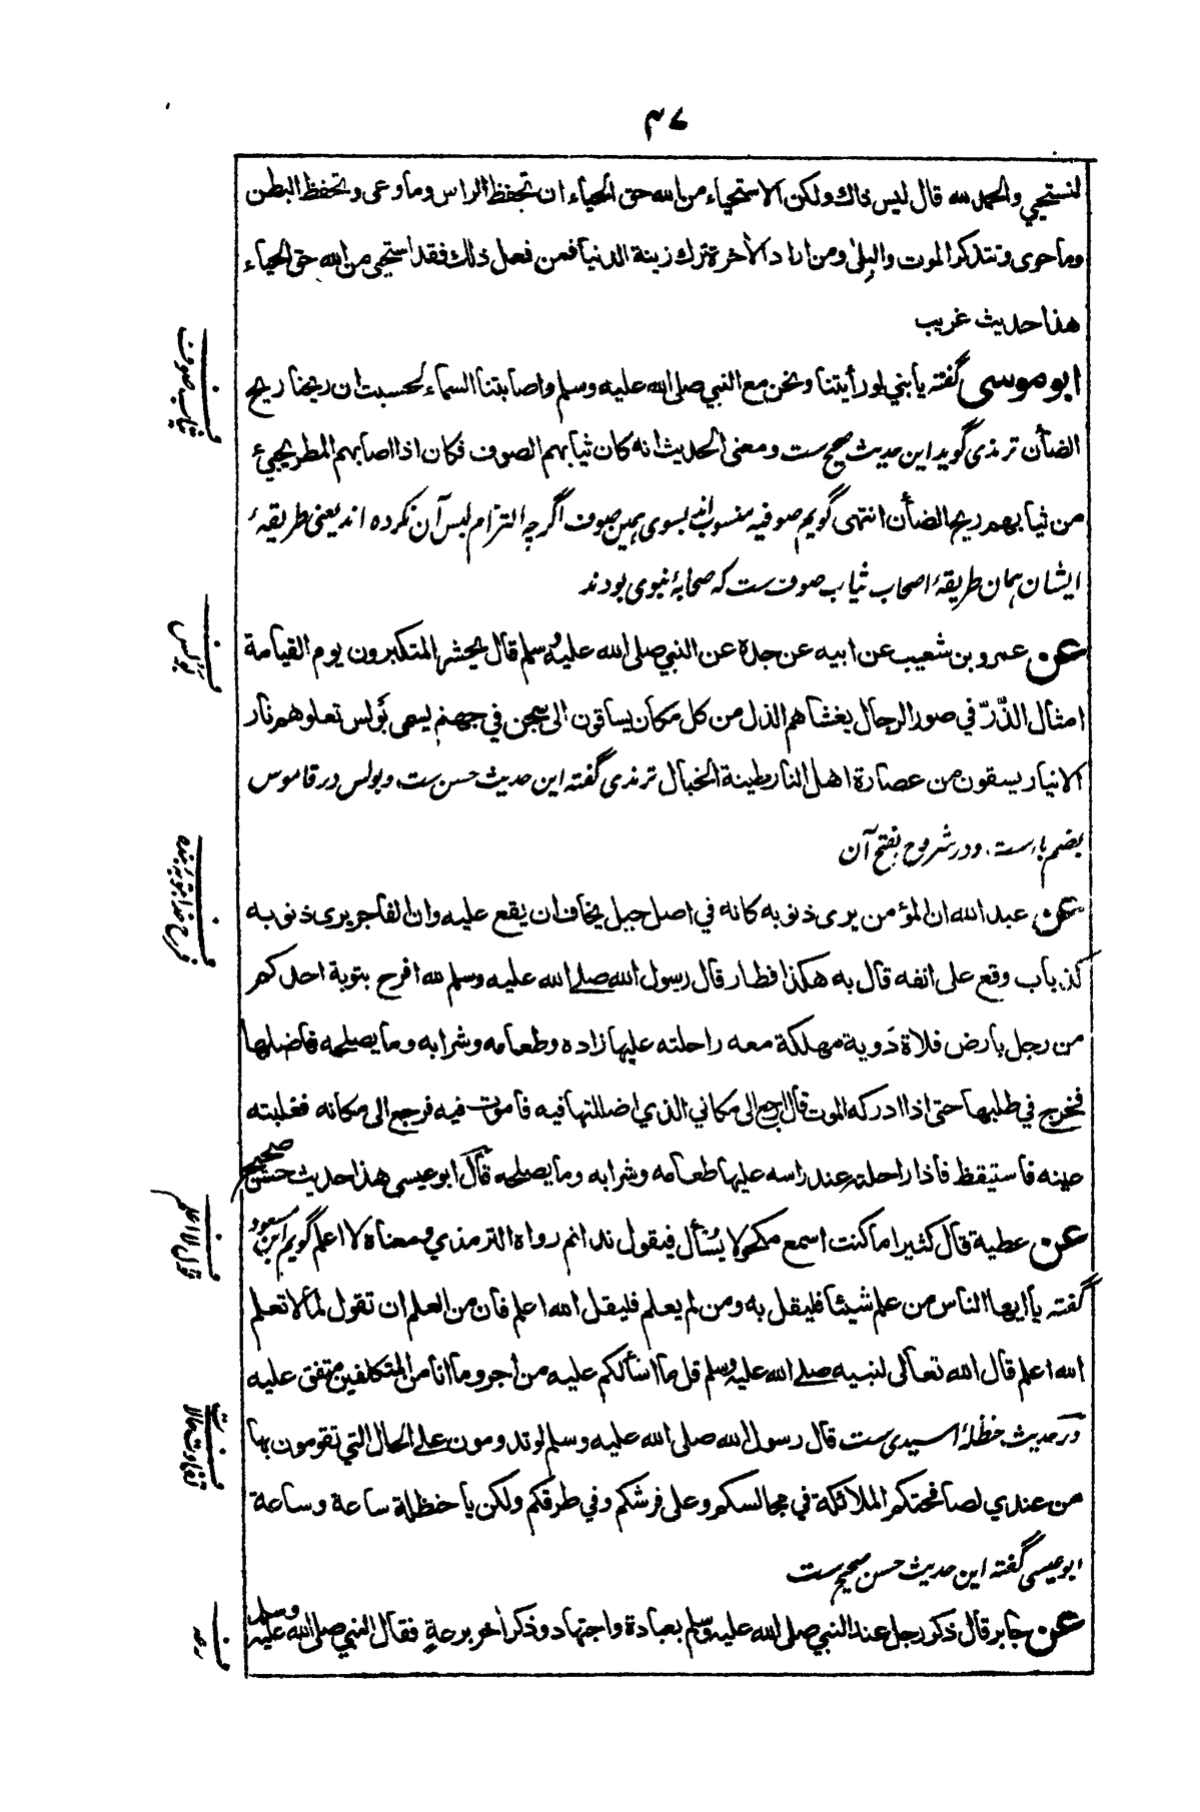 ٣٧
لنستحيي والحمد لله قال ليس ذاك ولكن الاستحياء من الله حق الحياء ان تحفظ الراس وما وعى وتحفظ البطن
وما حوى وتتذكر الموت والبلىٰ ومن اراد الآخرة ترك زينة الدنيا فمن فعل ذلك فقد استحيى من الله حق الحياء
هذا حديث غريب
ابو موسى گفته يا بني لو رأيتنا ونحن مع النبي صلى الله عليه وسلم واصابتنا السماء لحسبت ان ريحنا ريح
الضأن ترمذی گوید این حدیث صحیح ست ومعنى الحديث انه كان ثيابهم الصوف فكان اذا اصابهم المطر يجيئ
من ثيابهم ريح الضأن انتهى گویم صوفیه منسوب اند بسوی همین صوف اگرچه التزام لبس آن نکرده اند یعنی طریقهٔ
ایشان همان طریقهٔ اصحاب ثیاب صوف ست که صحابهٔ نبوی بودند
عن عمرو بن شعيب عن ابيه عن جده عن النبي صلى الله عليه وسلم قال يحشر المتكبرون يوم القيامة
امثال الذّرّ في صور الرجال يغشاهم الذل من كل مكان يساقون الى سجن في جهنم يسمى بَولس تعلوهم نار
الانيار يسقون من عصارة اهل النار طينة الخبال ترمذی گفته این حدیث حسن ست وبولس در قاموس
بضم باء ست ودر شروح بفتح آن
عن عبد الله ان المؤمن يرى ذنوبه كانه في اصل جبل يخاف ان يقع عليه وان الفاجر يرى ذنوبه
كذباب وقع على انفه قال به هكذا فطار قال رسول الله صلے الله عليه وسلم لله افرح بتوبة احدكم
من رجل بارض فلاة دَوية مهلكة معه راحلته عليها زاده وطعامه وشرابه وما يصلحه فاضلها
فخرج في طلبها حتى اذا ادركه الموت قال ارجع الى مكاني الذي اضللتها فيه فاموت فيه فرجع الى مكانه فغلبته
عينه فاستيقظ فاذا راحلته عند راسه عليها طعامه وشرابه وما يصلحه قال ابو عيسى هذا حديث حسن صحيح
عن عطية قال كثيرا ما كنت اسمع مكحولا يسأل فيقول ندانم رواه الترمذي ومعناه لا اعلم گویم ابن مسعود
گفته يا ايها الناس من علم شيئا فليقل به ومن لم يعلم فليقل الله اعلم فان من العلم ان تقول لما لا تعلم
الله اعلم قال الله تعالى لنبيه صلے الله عليه وسلم قل ما اسألكم عليه من اجر وما انا من المتكلفين متفق عليه
در حدیث حنظلهٔ اسیدی ست قال رسول الله صلى الله عليه وسلم لو تدومون على الحال التي تقومون بها
من عندي لصافحتكم الملائكة في مجالسكم وعلى فرشكم وفي طرقكم ولكن يا حنظلة ساعة وساعة
ابو عیسی گفته این حدیث حسن صحیح ست
عن جابر قال ذكر رجل عند النبي صلى الله عليه وسلم بعبادة واجتهاد وذكر اخر برعةٍ فقال النبي صلى الله عليه وسلم
ف ثیاب صوف
ف بَولس
ف فرح خدا بتوبه بنده
ف قول لا اعلم
ف تفاوت حال